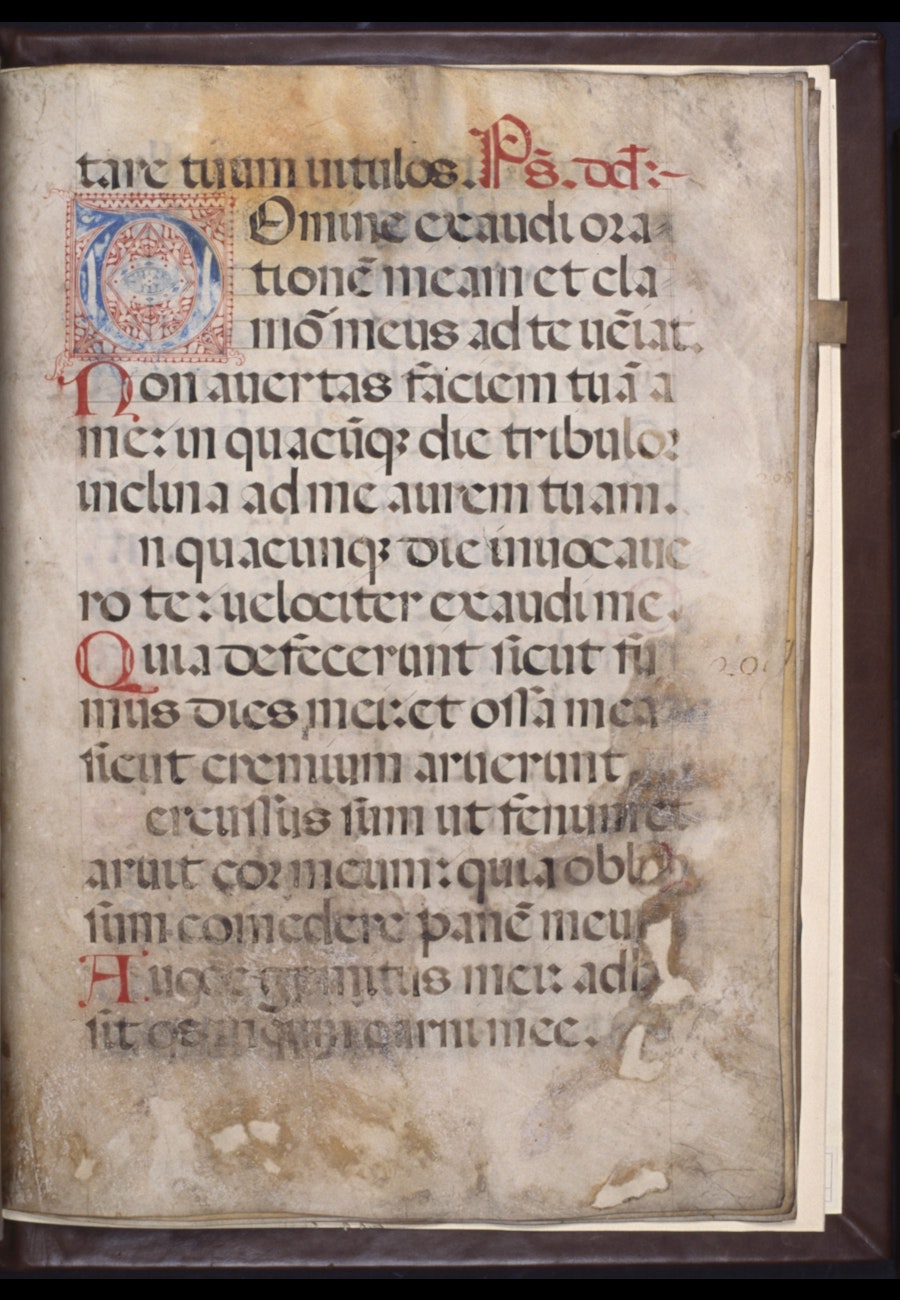 tare tuum uitulos. Ps̄. dd̄:~
DOmine exaudi ora
tionē meam et cla
mō meus ad te uēiat.
Non auertas faciem tuā a
me: in quacūq; die tribulor
inclina ad me aurem tuam.
n quacunq; die inuocaue
ro te: uelociter exaudi me.
Quia defecerunt sicut fu
mus dies mei: et ossa mea
sicut cremium aruerunt
ercussus sum ut fenum et
aruit cor meum: quia obl
sum comedere panē meu
A gemitus mei: adh
sit os carni mee.
207